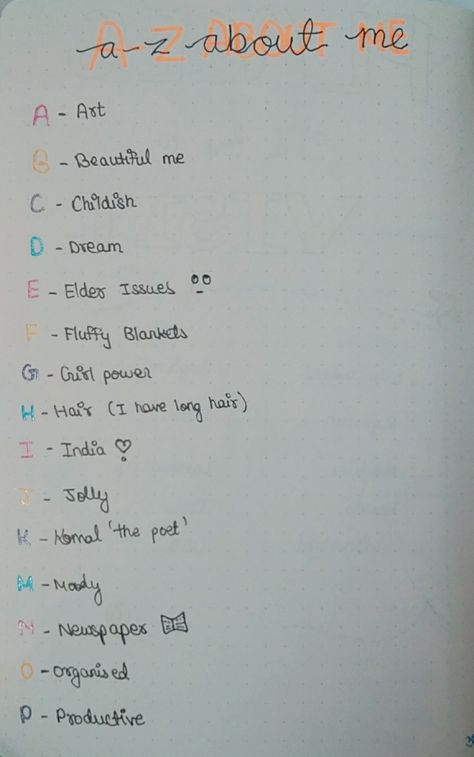 a-z about me
A - Art
B - Beautiful me
C - Childish
D - Dream
E - Elder Issues
F - Fluffy Blankets
G - Girl power
H - Hair (I have long hair)
I - India
J - Jolly
K - Komal 'the poet'
M - Moody
N - Newspaper
O - Organised
P - Productive